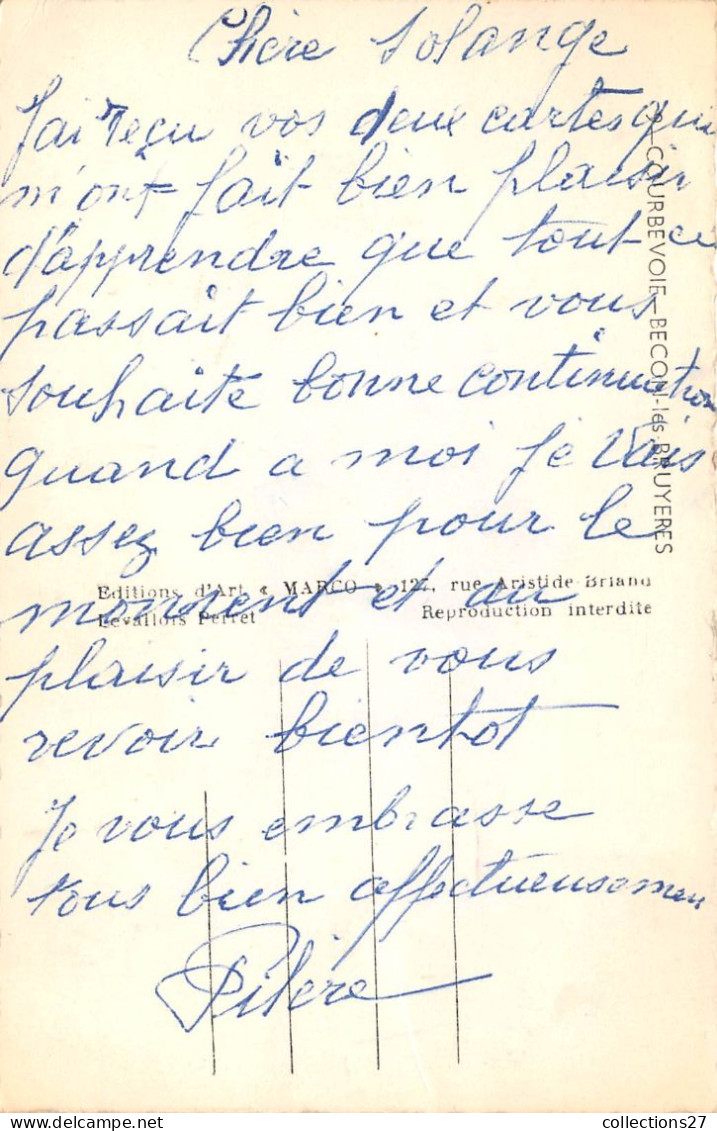 Chère Solange
J'ai reçu vos deux cartes qui
m'ont fait bien plaisir
d'apprendre que tout ce
passait bien et vous
souhaite bonne continuation
quand a moi je vais
assez bien pour le
moment et au
plaisir de vous
revoir bientot
Je vous embrasse
tous bien affectueusemen
COURBEVOIE - BECON-les-BRUYERES
Editions d'Art « MARCO » 127, rue Aristide Briand
Levallois Perret Reproduction interdite
collections27